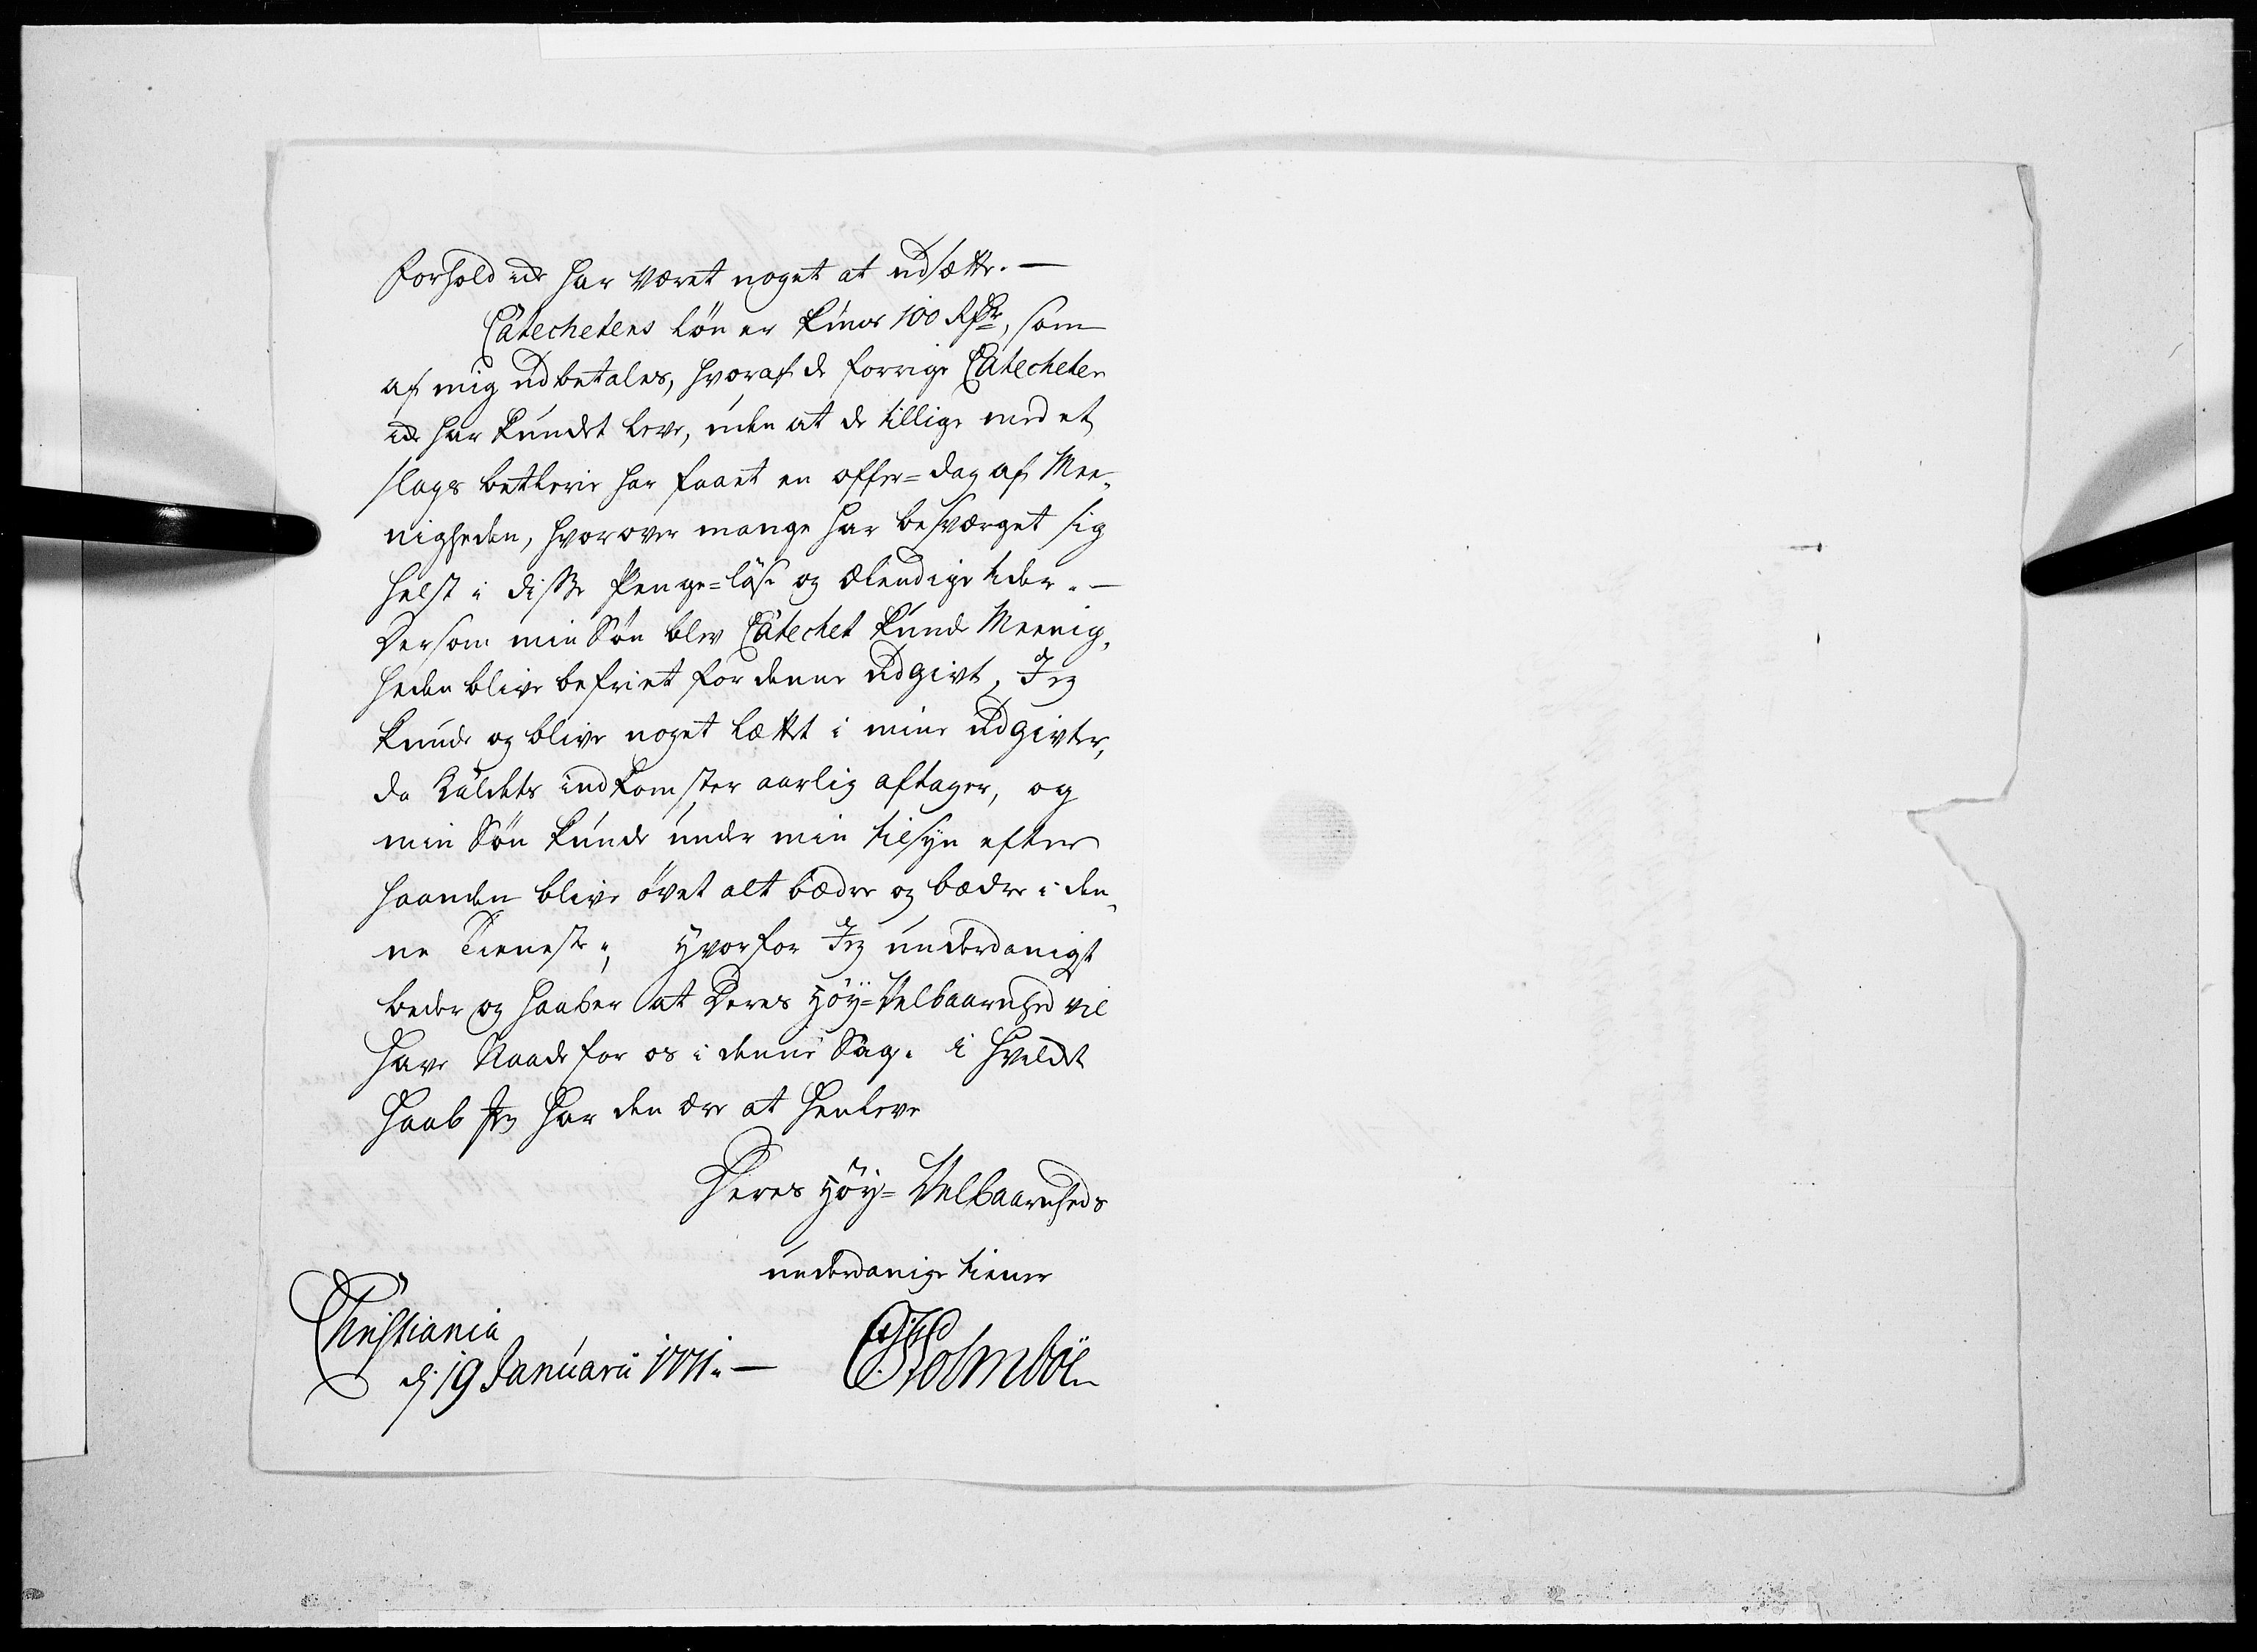 forhold icke har været noget at udsætte. —
Catechetens Løn er kuns 100 Rdr, som
af mig udbetales, hvoraf de forrige Catecheter
icke har kundet leve, uden at de tillige med et
slags betlerie har faaet en offer=dag af Mee„
nigheden, hvorover mange har besværget sig
helst i disse Penge=løse og Elendige tider. —
Dersom min Søn blev Catechet kunde Meenig„
heden blive befriet for denne udgivt, Jeg
kunde og blive noget lættet i mine udgivter,
da Kaldets indkomster aarlig aftager, og
min Søn kunde under min tilsyn efter
haanden blive øvet alt bædre og bædre i den„
ne Tieneste; Hvorfor Jeg underdanigst
beder og haaber at Deres Høy=Velbaarnhed vil
have Naade for os i denne Sag. i hvilket
Haab Jeg har den ære at henleve
Deres Høy=Velbaarnheds
underdanige tiener
Christiania
d. 19 Januarii 1771. —
Holmboe